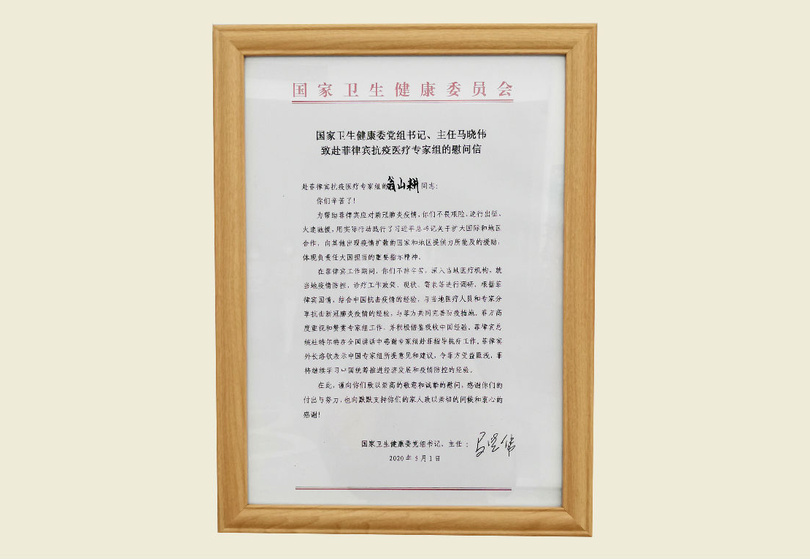 国家卫生健康委员会
国家卫生健康委党组书记、主任马晓伟
致赴菲律宾抗疫医疗专家组的慰问信
赴菲律宾抗疫医疗专家组的翁山耕同志：
你们辛苦了！
为帮助菲律宾应对新冠肺炎疫情，你们不畏艰险，逆行出征，
火速驰援，用实际行动践行了习近平总书记关于扩大国际和地区
合作，向其他出现疫情扩散的国家和地区提供力所能及的援助，
体现负责任大国担当的重要指示精神。
在菲律宾工作期间，你们不辞辛劳，深入当地医疗机构，就
当地疫情防控、诊疗工作政策、现状、需求等进行调研，根据菲
律宾国情，结合中国抗击疫情的经验，与当地医疗人员和专家分
享抗击新冠肺炎疫情的经验，与菲方共同完善防疫措施。菲方高
度重视和赞赏专家组工作，并积极借鉴我核中国经验。菲律宾总
统杜特尔特在全国讲话中感谢专家组赴菲指导抗疫工作。菲律宾
外长洛钦表示中国专家组所提意见和建议，令菲方受益匪浅，菲
将继续学习中国统筹推进经济发展和疫情防控的经验。
在此，谨向你们致以崇高的敬意和诚挚的慰问，感谢你们的
付出与努力，也向默默支持你们的家人致以亲切的问候和衷心的
感谢！
国家卫生健康委党组书记、主任：马晓伟
2020年5月1日